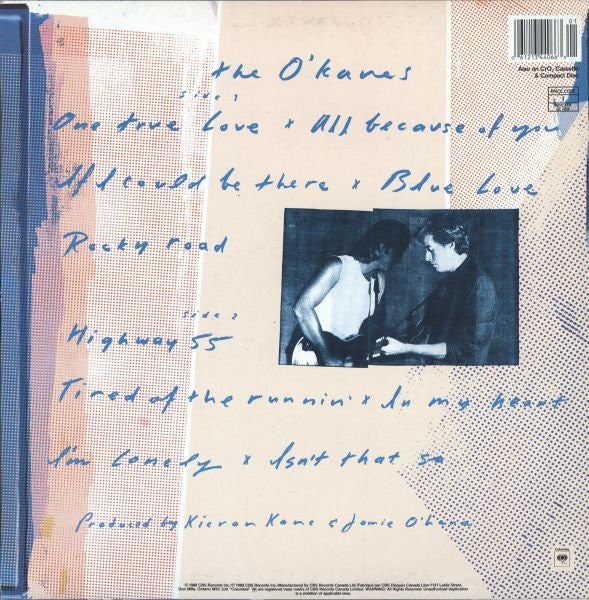 01
61213 44066
Also on CrO2 Cassette
& Compact Disc
the O'Kanes
side 1
One true Love x All because of you
If I could be there x Blue Love
Rocky road
side 2
Highway 55
Tired of the runnin' x In my heart
I'm Lonely x Isn't that so
Produced by Kieran Kane & Jamie O'hara
℗ 1986 CBS Records Inc./© 1986 CBS Records Inc./Manufactured by CBS Records Canada Ltd./Fabriqué par CBS Disques Canada Ltée/1121 Leslie Street,
Don Mills, Ontario M3C 2J9. "Columbia" are registered trade marks of CBS Records Canada Limited. WARNING: All Rights Reserved. Unauthorized duplication
is a violation of applicable laws.
Columbia